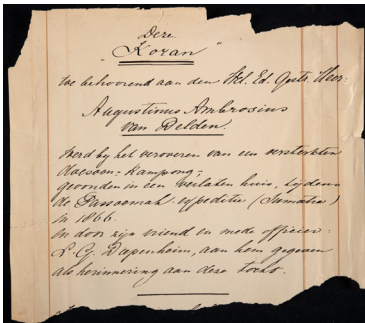 Deze
"Koran"
toe behoorend aan den Wel. Ed. Gestr. Heer:
Augustinus Ambrosius
van Delden.
Werd by het veroveren van een versterkten
doesoen-Kampong;
gevonden in een verlaten huis, tijdens
de Passoemah expeditie (Sumatra)
in 1866.
en door zijn vriend en mede officier:
L. G. Diepenheim, aan hem gegeven
als herinnering aan deze tocht.